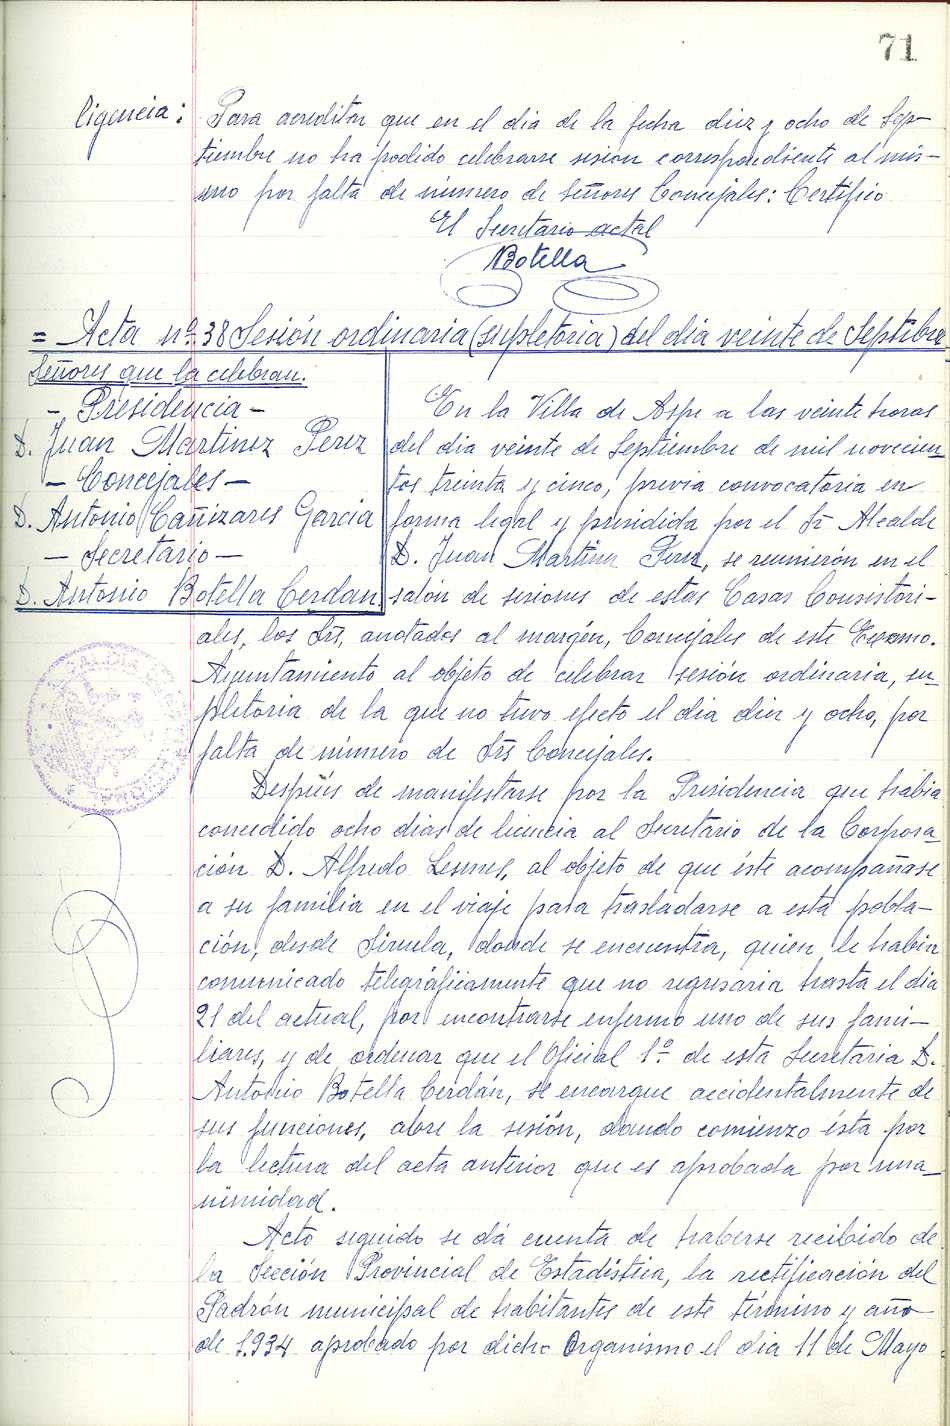 71
ligencia: Para acreditar que en el dia de la fecha diez y ocho de Sep-
tiembre no ha podido celebrarse sesión correspondiente al mis-
mo por falta de número de Señores Concejales: Certifico
El Secretario actal
Botella
= Acta nº 38 Sesión ordinaria (supletoria) del dia veinte de Septibre
Señores que la celebran.
- Presidencia -
D. Juan Martinez Perez
- Concejales -
D. Antonio Cañizares Garcia
- Secretario -
D. Antonio Botella Cerdan
En la Villa de Aspe a las veinte horas
del dia veinte de Septiembre de mil novecien-
tos treinta y cinco, previa convocatoria en
forma legal y presidida por el Sr Alcalde
D. Juan Martinez Perez, se reunierón en el
salón de sesiones de estas Casas Consistori-
ales, los Srs, anotados al margén, Concejales de este Excmo.
Ayuntamiento al objeto de celebrar sesión ordinaria, su-
pletoria de la que no tuvo efecto el dia diez y ocho, por
falta de número de Srs Concejales.
Despúes de manifestarse por la Presidencia que habia
concedido ocho dias de licencia al Secretario de la Corpora-
ción D. Alfredo Lesmes, al objeto de que éste acompañase
a su familia en el viaje para trasladarse a esta pobla-
ción, desde Siruela, donde se encuentra, quien le habia
comunicado telegráficamente que no regresaria hasta el dia
21 del actual, por encontrarse enfermo uno de sus fami-
liares, y de ordenar que el Oficial 1º de esta Secretaria D.
Antonio Botella Cerdán, se encargue accidentalmente de
sus funciones, abre la sesión, dando comienzo ésta por
la lectura del acta anterior que es aprobada por una-
nimidad.
Acto seguido se dá cuenta de haberse recibido de
la Sección Provincial de Estadística, la rectificación del
Padrón municipal de habitantes de este término y año
de 1.934 aprobado por dicho Organismo el dia 11 de Mayo